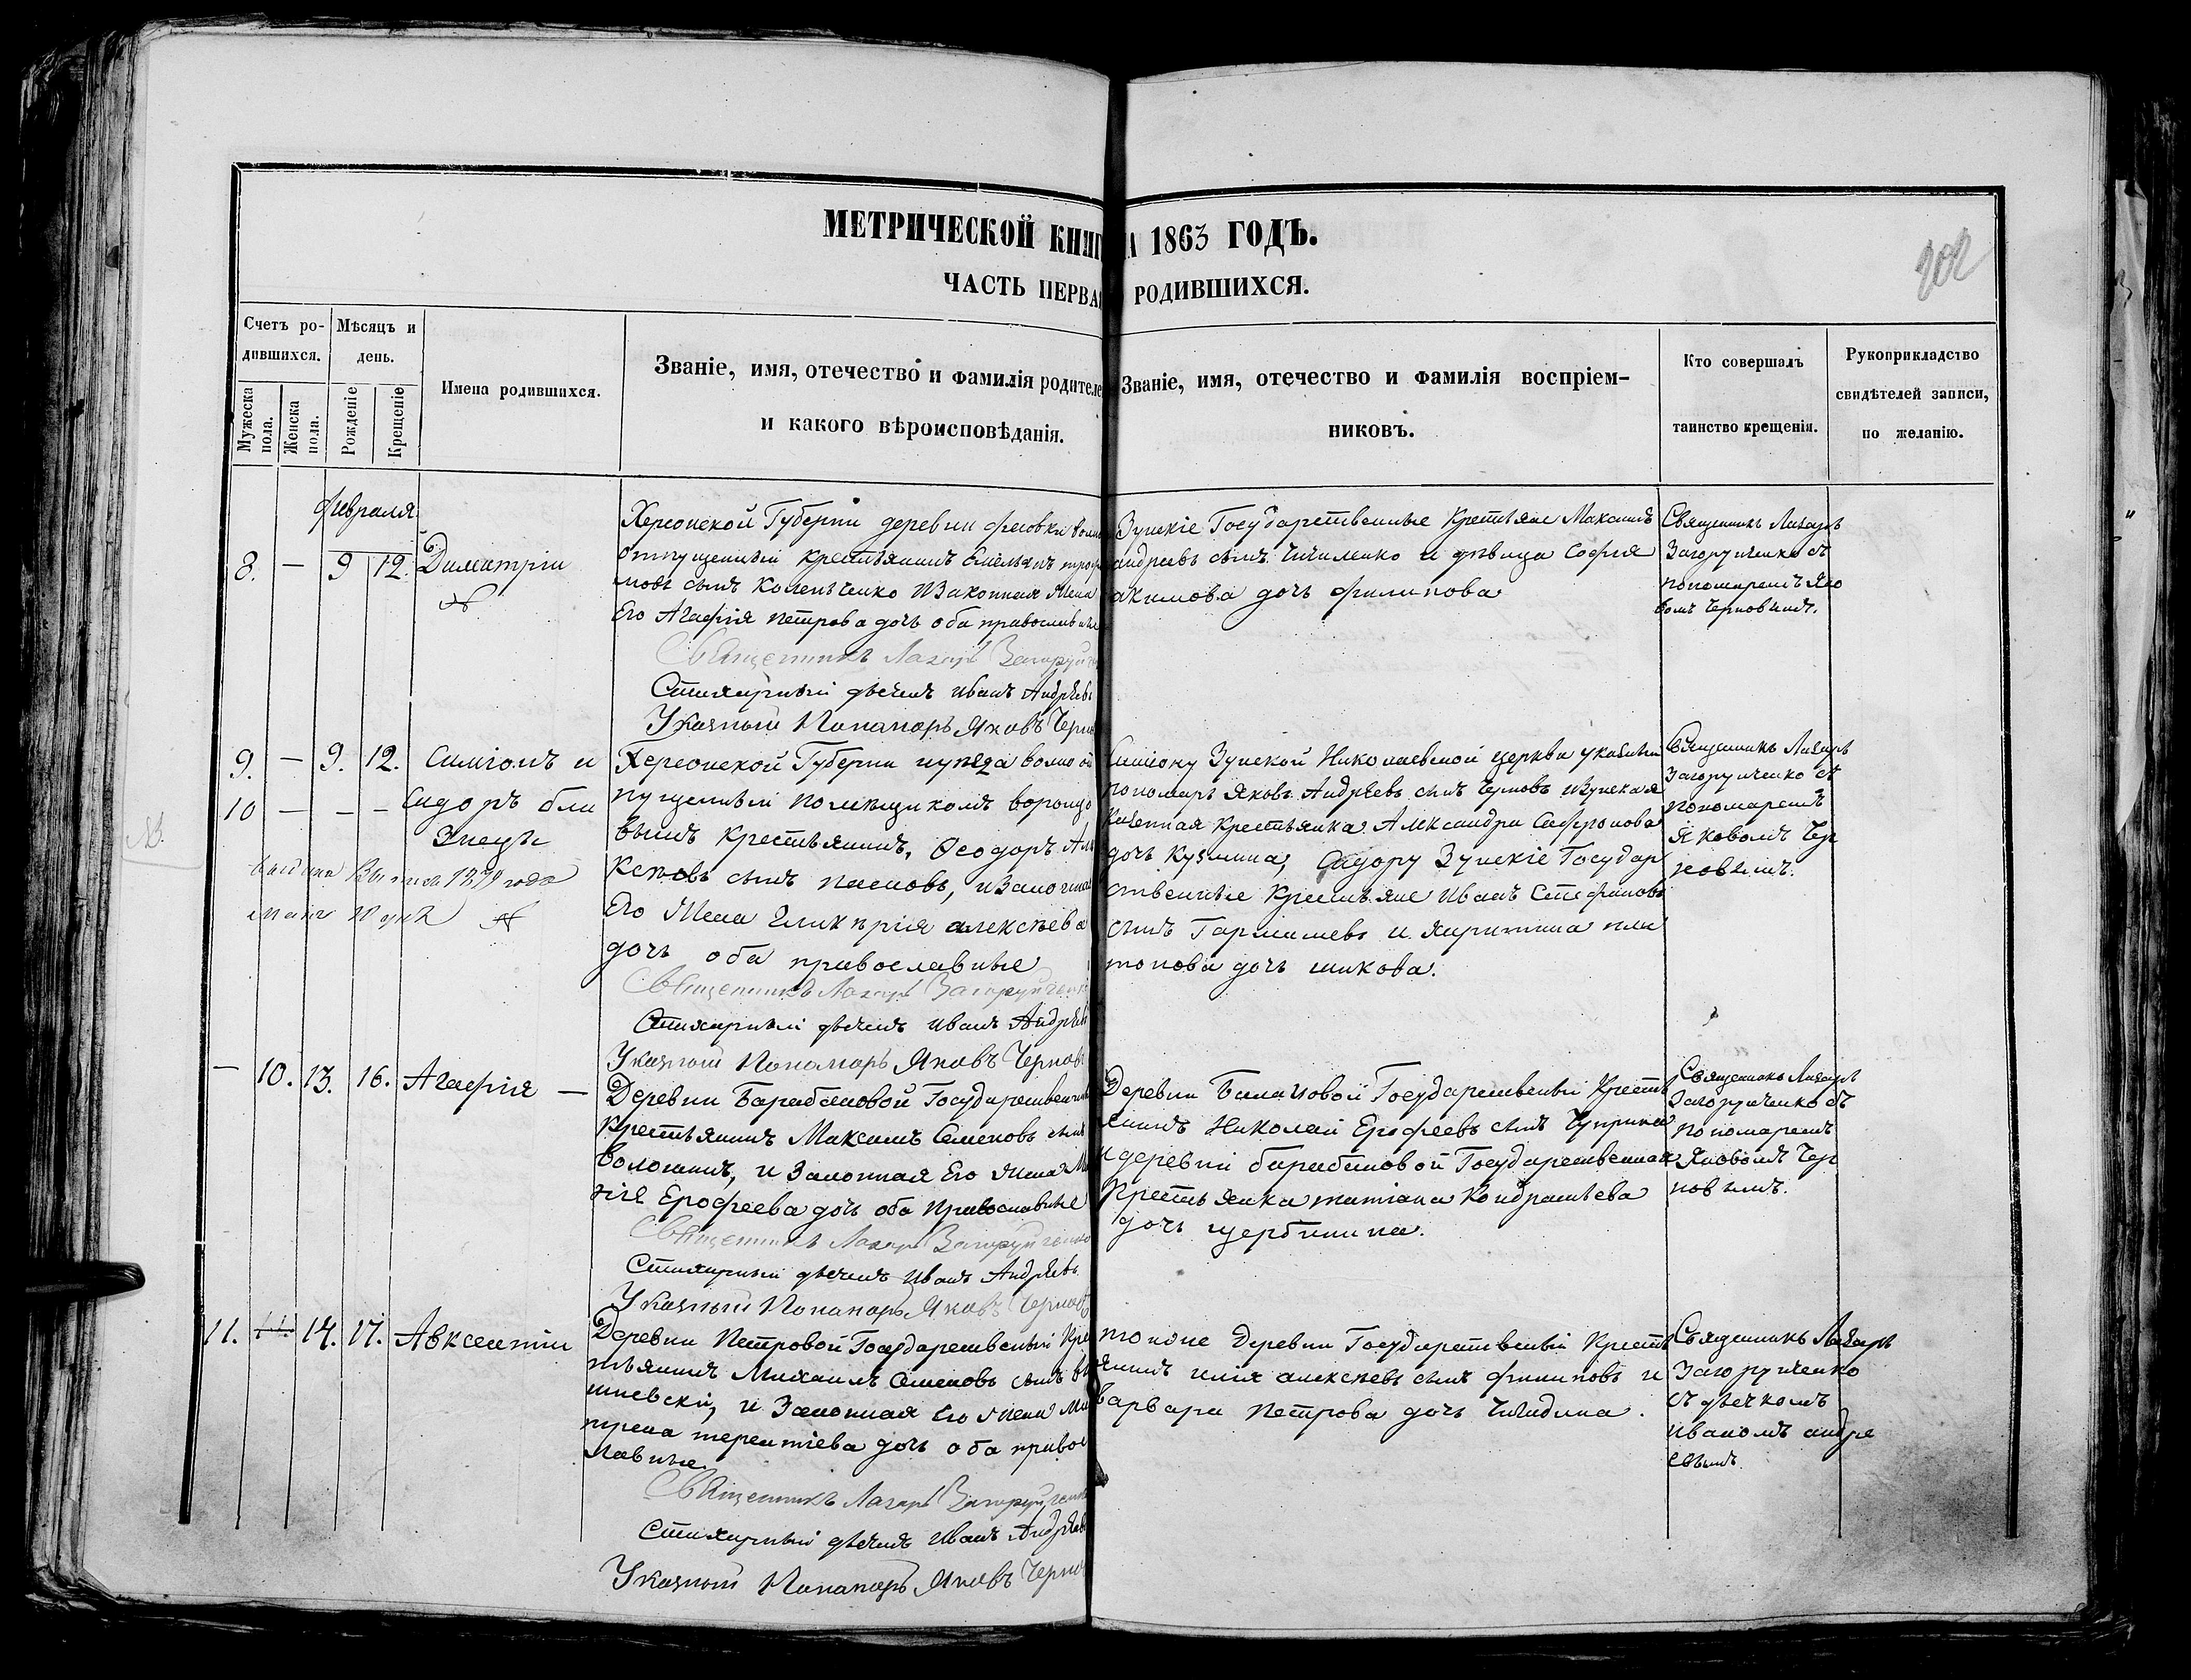 МЕТРИЧЕСКОЙ КНИГ
А 1863 ГОДЪ.
ЧАСТЬ ПЕРВА
РОДИВШИХСЯ.
202
Счетъ ро-
дившихся.
Мужеска пола.
Женска пола.
Мѣсяцъ и
день.
Рожденіе
Крещеніе
Имена родившихся.
Званіе, имя, отечество и фамилія родителе
и какого вѣроисповѣданія.
Званіе, имя, отечество и фамилія воспріем-
никовъ.
Кто совершалъ
таинство крещенія.
Рукоприкладство
свидѣтелей записи,
по желанію.
февраля
8. — 9 12. Димитрій
Херсонской Губерніи деревни
отпущенный крестьянинъ Емельянъ
сынъ и Законная Жена
Его Агафія Петрова дочь оба православные
Священникъ Лазарь Загоруйченко
Стихарный дьячекъ Иванъ Андрѣевъ
Указный Понамарь Яковъ Черно
Зуйскіе Государственные Крестьяне Максимъ
андреевъ сынъ Чичименко и дѣвица Софія
акимова дочь филипова
Священникъ Лазарь
Загоруйченко съ
пономаремъ Яко
вомъ Черновымъ.
9. — 9. 12. Симіонъ и
10 — — — Сидоръ бли
знецы
Херсонской Губерніи
пущенный помѣщикомъ воронцо
вымъ Крестьянинъ, Ѳеодоръ
сынъ и Законная
Его Жена Гликирія алексѣева
дочь оба православные
Священникъ Лазарь Загоруйченко
Стихарный дьячекъ Иванъ Андрѣевъ
Указный Понамарь Яковъ Черновъ
Симіону Зуйской Николаевской церкви указный
пономарь Яковъ Андрѣевъ сынъ Черновъ и Зуйская
Казенная Крестьянка Александра Сафронова
дочь Кузмина, Сидору Зуйскіе Государ
ственные Крестьяне Иванъ Стефановъ
сынъ и Харитина пла
тонова дочь шикова.
Священникъ Лазарь
Загоруйченко съ
пономаремъ
Яковомъ Чер
новымъ.
— 10. 13. 16. Агафія —
Деревни Барабановой Государственный
Крестьянинъ Максимъ Семеновъ сынъ
Волошинъ, и Законная Его Жена
Ерофеева дочь оба Православные
Священникъ Лазарь Загоруйченко
Стихарный дьячекъ Иванъ Андрѣевъ
Указный Понамарь Яковъ Черновъ
Деревни Балановой Государственный Кресть
янинъ Николай Ерофеевъ сынъ Чуприна
и деревни барабановой Государственная
Крестьянка татіана Кондратьева
дочь щербинина.
Священникъ Лазарь
Загоруйченко съ
пономаремъ
Яковомъ Чер
новымъ.
11. 11. 14. 17. Авксентій
Деревни Петровой Государственный Кре
стьянинъ Михаилъ Семеновъ сынъ
и Законная Его Жена Ма
трена терентіева дочь оба право
славные
Священникъ Лазарь Загоруйченко
Стихарный дьячекъ Иванъ Андрѣевъ
Указный Понамарь Яковъ Черно
тойже Деревни Государственный Кресть
янинъ илія алексѣевъ сынъ филиповъ и
варвара Петрова дочь
Священникъ Лазарь
Загоруйченко
съ дьячкомъ
иваномъ андре
евымъ.